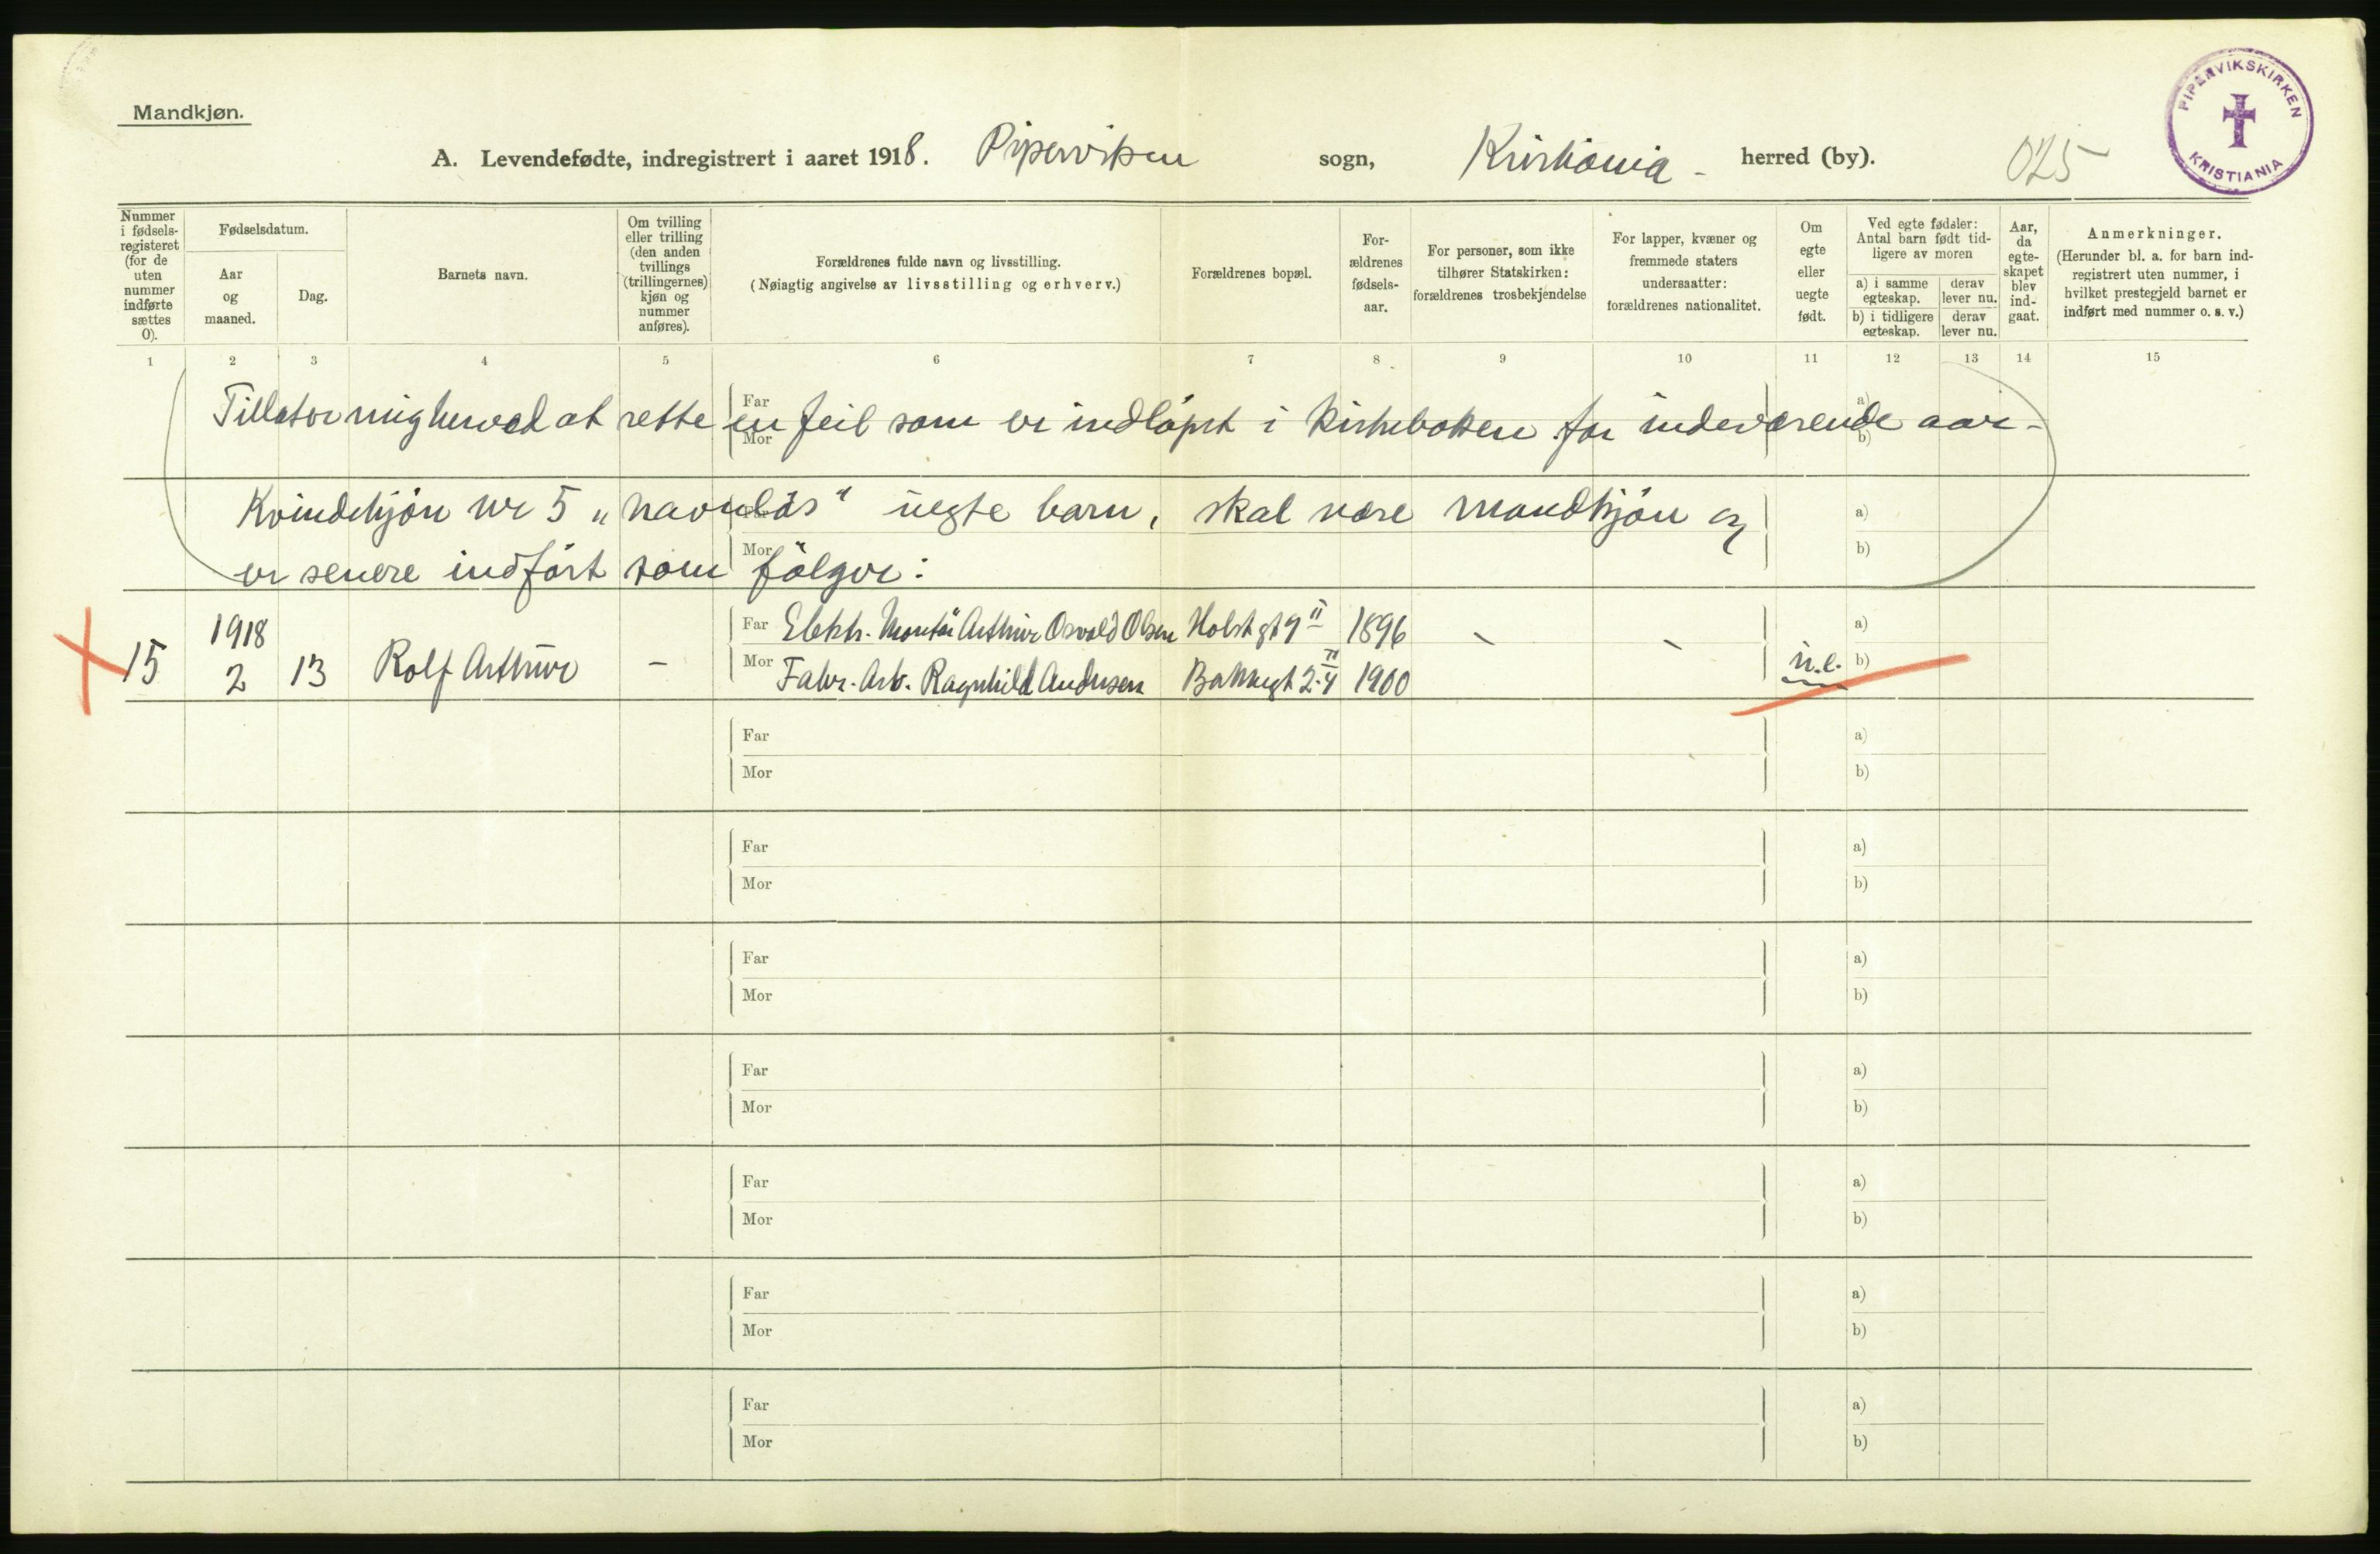 Mandkjøn.
A. Levendefødte, indregistrert i aaret 1918. Piperviken sogn, Kristiania - herred (by). 025
PIPERVIKSKIRKEN KRISTIANIA
Nummer i fødsels-registeret (for de uten nummer indførte sættes 0).
Fødselsdatum.
Aar og maaned.
Dag.
Barnets navn.
Om tvilling eller trilling (den anden tvillings (trillingernes) kjøn og nummer anføres).
Forældrenes fulde navn og livsstilling.
(Nøiagtig angivelse av livsstilling og erhverv.)
Forældrenes bopæl.
For-ældrenes fødsels-aar.
For personer, som ikke tilhører Statskirken: forældrenes trosbekjendelse
For lapper, kvæner og fremmede staters undersaatter: forældrenes nationalitet.
Om egte eller uegte født.
Ved egte fødsler: Antal barn født tid-ligere av moren
a) i samme egteskap.
derav lever nu.
b) i tidligere egteskap.
derav lever nu.
Aar, da egte-skapet blev ind-gaat.
Anmerkninger.
(Herunder bl. a. for barn ind-registrert uten nummer, i hvilket prestegjeld barnet er indført med nummer o. s. v.)
1 2 3 4 5 6 7 8 9 10 11 12 13 14 15
Far a)
Tillater mig herved at rette en feil som er indløpet i kirkeboken for indeværende aar -
Mor b)
Kvindekjön nr 5 „navnlös" uegte barn, skal være mandkjön og a)
Mor b)
er senere indfört som fölger:
1918 Far Elektr. Montör Arthur Osvald Olsen Holst gt 9 II 1896 - - a)
15 2 13 Rolf Arthur - Mor Fabr. Arb. Ragnhild Andersen 1900 u.e. b)
Far a)
Mor b)
Far a)
Mor b)
Far a)
Mor b)
Far a)
Mor b)
Far a)
Mor b)
Far a)
Mor b)
Far a)
Mor b)